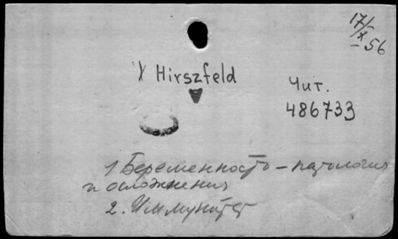 17/X 56
Hirszfeld
Чит.
486733
1 Беременность – патология
и осложнения
2. Иммунитет